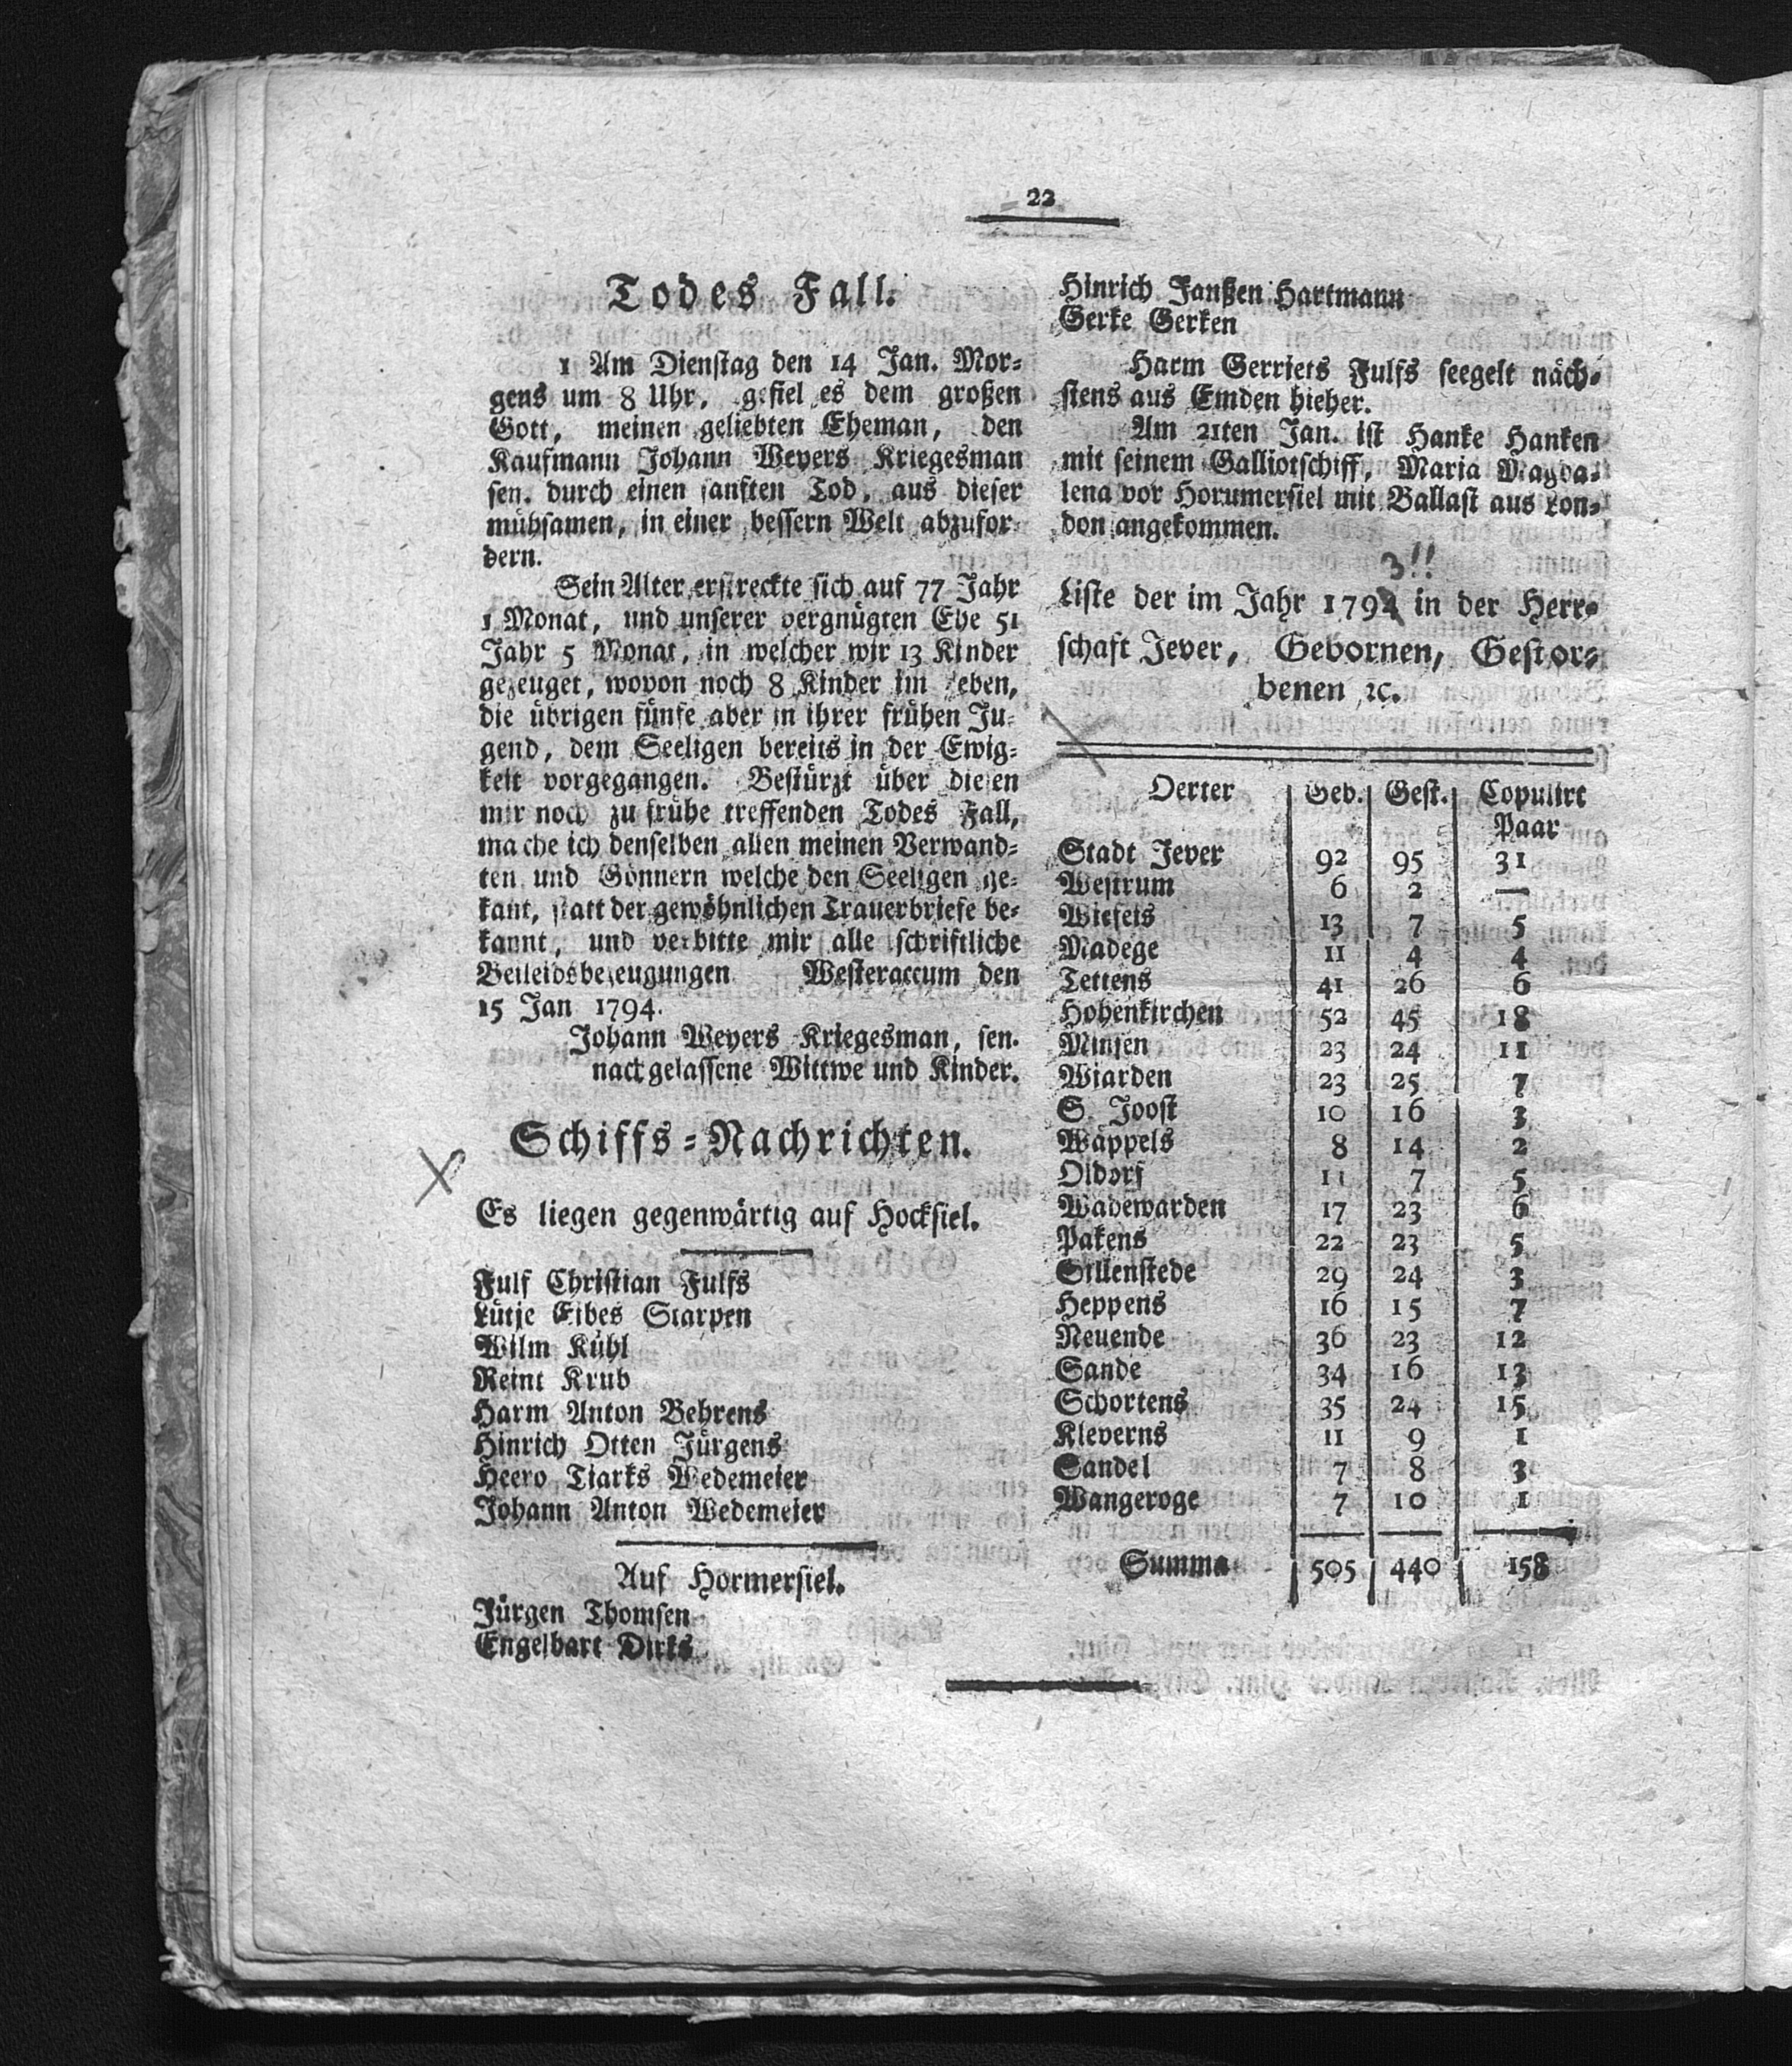 22
Todes Fall.
1 Am Dienstag den 14 Jan. Mor-
gens um 8 Uhr, gefiel es dem großen
Gott, meinen geliebten Eheman, den
Kaufmann Johann Weyers Kriegesman
sen. durch einen sanften Tod, aus dieser
mühsamen, in einer bessern Welt abzufor-
dern.
Sein Alter erstreckte sich auf 77 Jahr
1 Monat, und unserer vergnügten Ehe 51
Jahr 5 Monat, in welcher wir 13 Kinder
gezeuget, wovon noch 8 Kinder im Leben,
die übrigen fünfe aber in ihrer frühen Ju-
gend, dem Seeligen bereits in der Ewig-
keit vorgegangen. Bestürzt über diesen
mir noch zu frühe treffenden Todes Fall,
mache ich denselben allen meinen Verwand-
ten und Gönnern welche den Seeligen ge-
kant, statt der gewöhnlichen Trauerbriefe be-
kannt, und verbitte mir alle schriftliche
Beileidsbezeugungen Westeraccum den
15 Jan 1794.
Johann Weyers Kriegesman, sen.
nachgelassene Wittwe und Kinder.
Schiffs-Nachrichten.
Es liegen gegenwärtig auf Hocksiel.
Fulf Christian Fulfs
Lütje Eibes Starpen
Wilm Kühl
Reint Krub
Harm Anton Behrens
Hinrich Otten Jürgens
Heero Tiarks Wedemeier
Johann Anton Wedemeier
Auf Hormersiel.
Jürgen Thomsen
Engelbart Dirks
Hinrich Janßen Hartmann
Gerke Gerken
Harm Gerriets Fulfs seegelt näch-
stens aus Emden hieher.
Am 21ten Jan. ist Hanke Hanken
mit seinem Galliotschiff, Maria Magda-
lena vor Horumersiel mit Ballast aus Lon-
don angekommen.
3!!
Liste der im Jahr 1794 in der Herr-
schaft Jever, Gebornen, Gestor-
benen ꝛc.
Oerter Geb. Gest. Copulirt
Paar
Stadt Jever 92 95 31
Westrum 6 2 —
Wiefels 13 7 5
Madege 11 4 4
Tettens 41 26 6
Hohenkirchen 52 45 18
Minsen 23 24 11
Wiarden 23 25 7
S. Joost 10 16 3
Wäppels 8 14 2
Oldorf 11 7 5
Wadewarden 17 23 6
Pakens 22 23 5
Sillenstede 29 24 3
Heppens 16 15 7
Neuende 36 23 12
Sande 34 16 13
Schortens 35 24 15
Kleverns 11 9 1
Sandel 7 8 3
Wangeroge 7 10 1
Summa 505 440 158